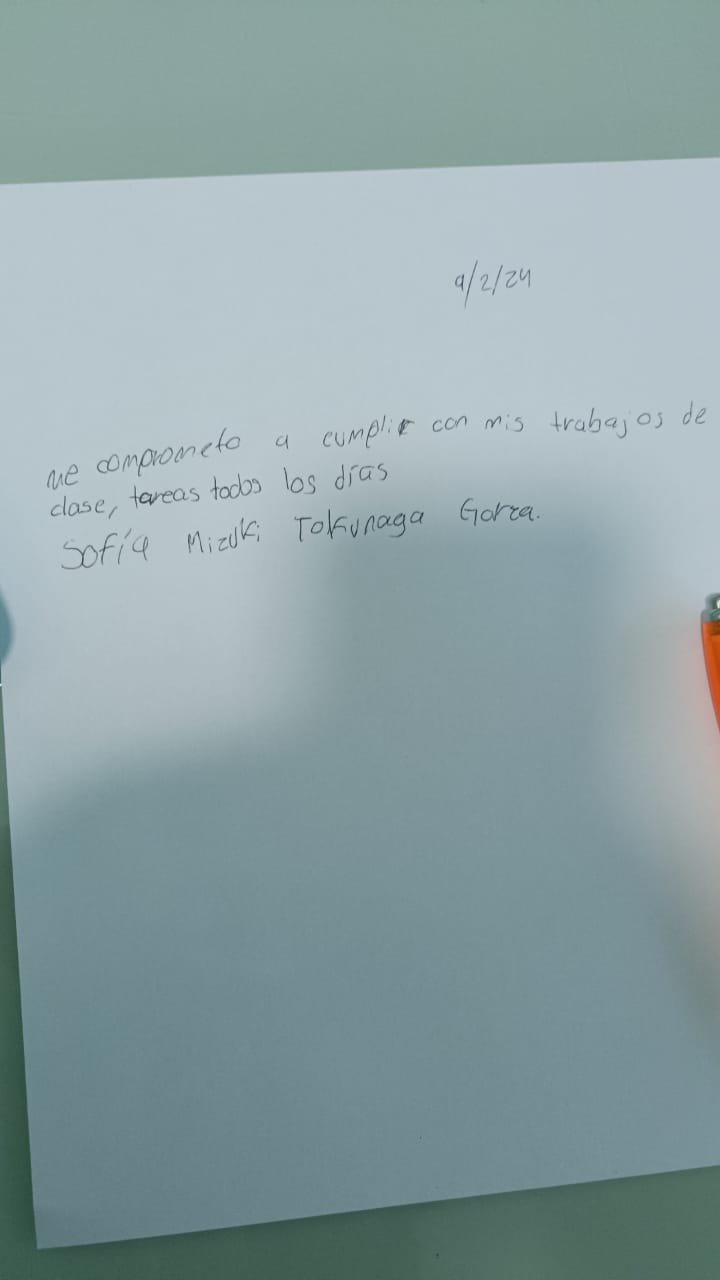 9/2/24
me comprometo a cumplir con mis trabajos de
clase, tareas todos los días
Sofía Mizuki Tokunaga Garza.